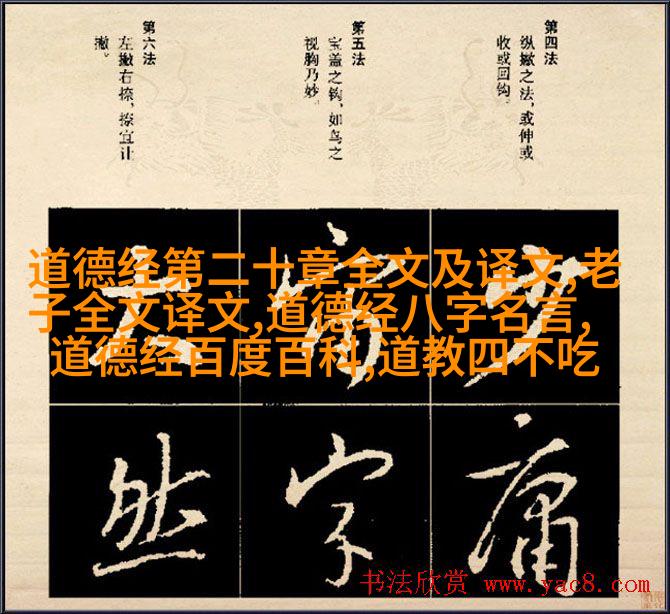 第四法
纵撇之法，或伸或
收或回钩。
第五法
宝盖之钩，如鸟之
视胸乃妙。
第六法
左撇右捺，捺宜让
撇。
道德经第二十章全文及译文,老
子全文译文,道德经八字名言,
道德经百度百科,道教四不吃
少
庸
字
然
书法欣赏 www.yac8.com